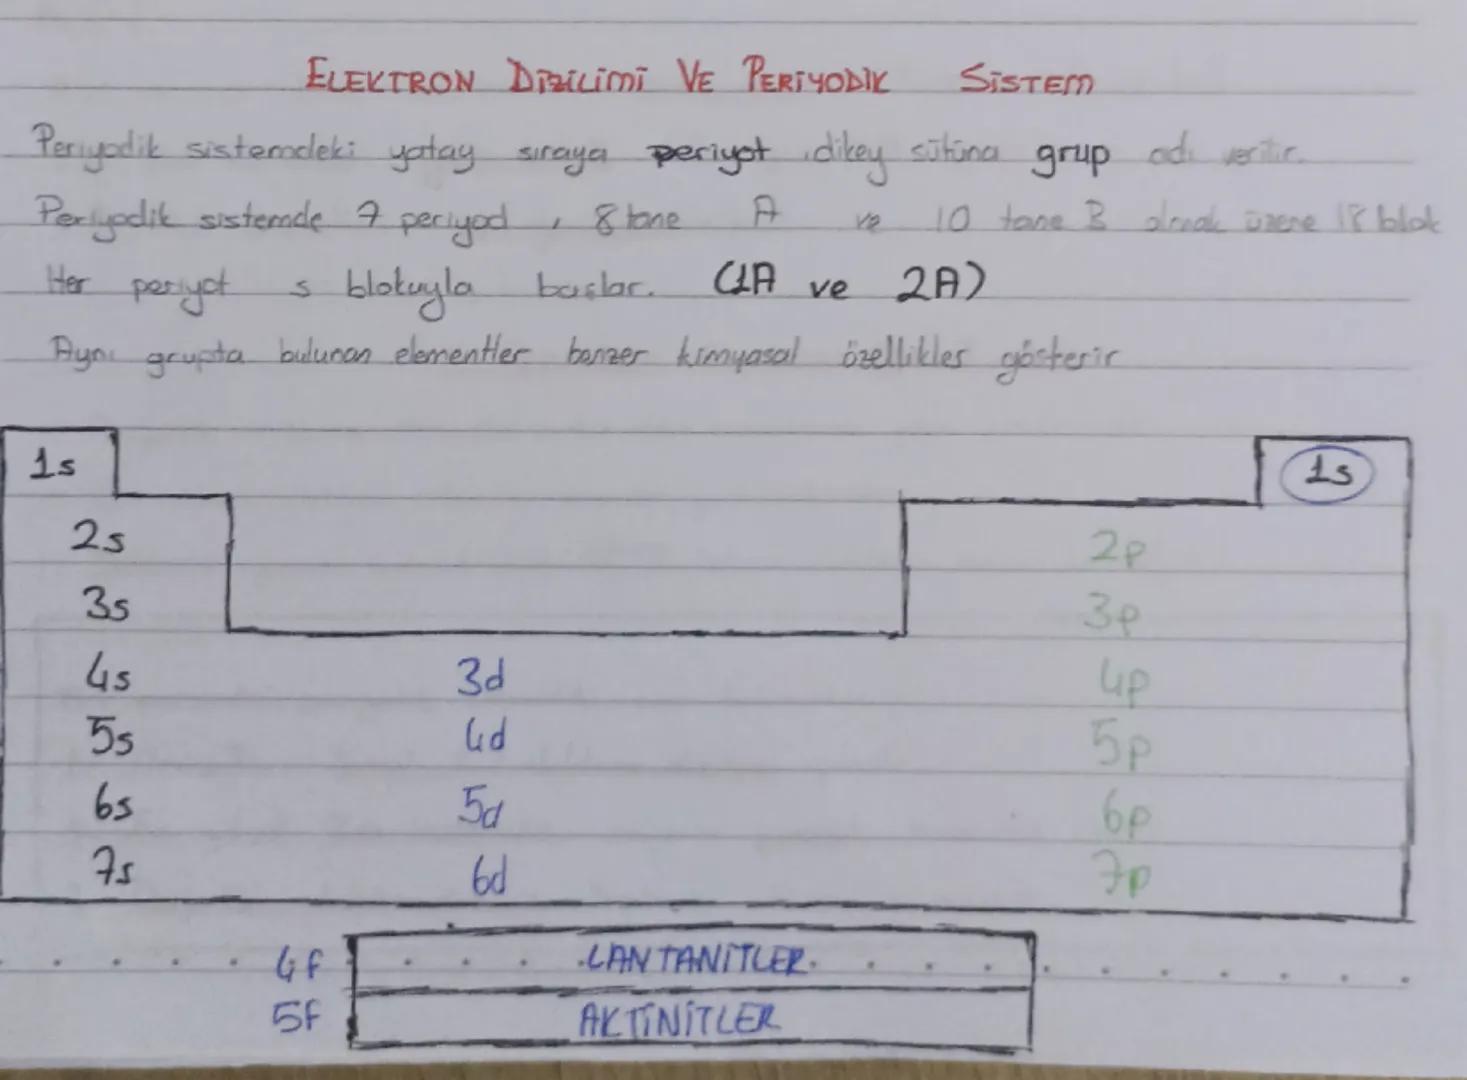 ELEKTRON DİZİLİMİ VE PERİYODİK SİSTEM
Periyodik sistemdeki yatay sıraya periyot, dikey sütuna grup adı verilir.
Periyodik sistemde 7 periyod, 8 tane A ve 10 tane B olmak üzere 18 blok
Her periyot s blokuyla başlar. (1A ve 2A)
Aynı grupta bulunan elementler benzer kimyasal özellikler gösterir
1s 1s
2s 2p
3s 3p
4s 3d 4p
5s 4d 5p
6s 5d 6p
7s 6d 7p
4f LANTANİTLER
5f AKTİNİTLER